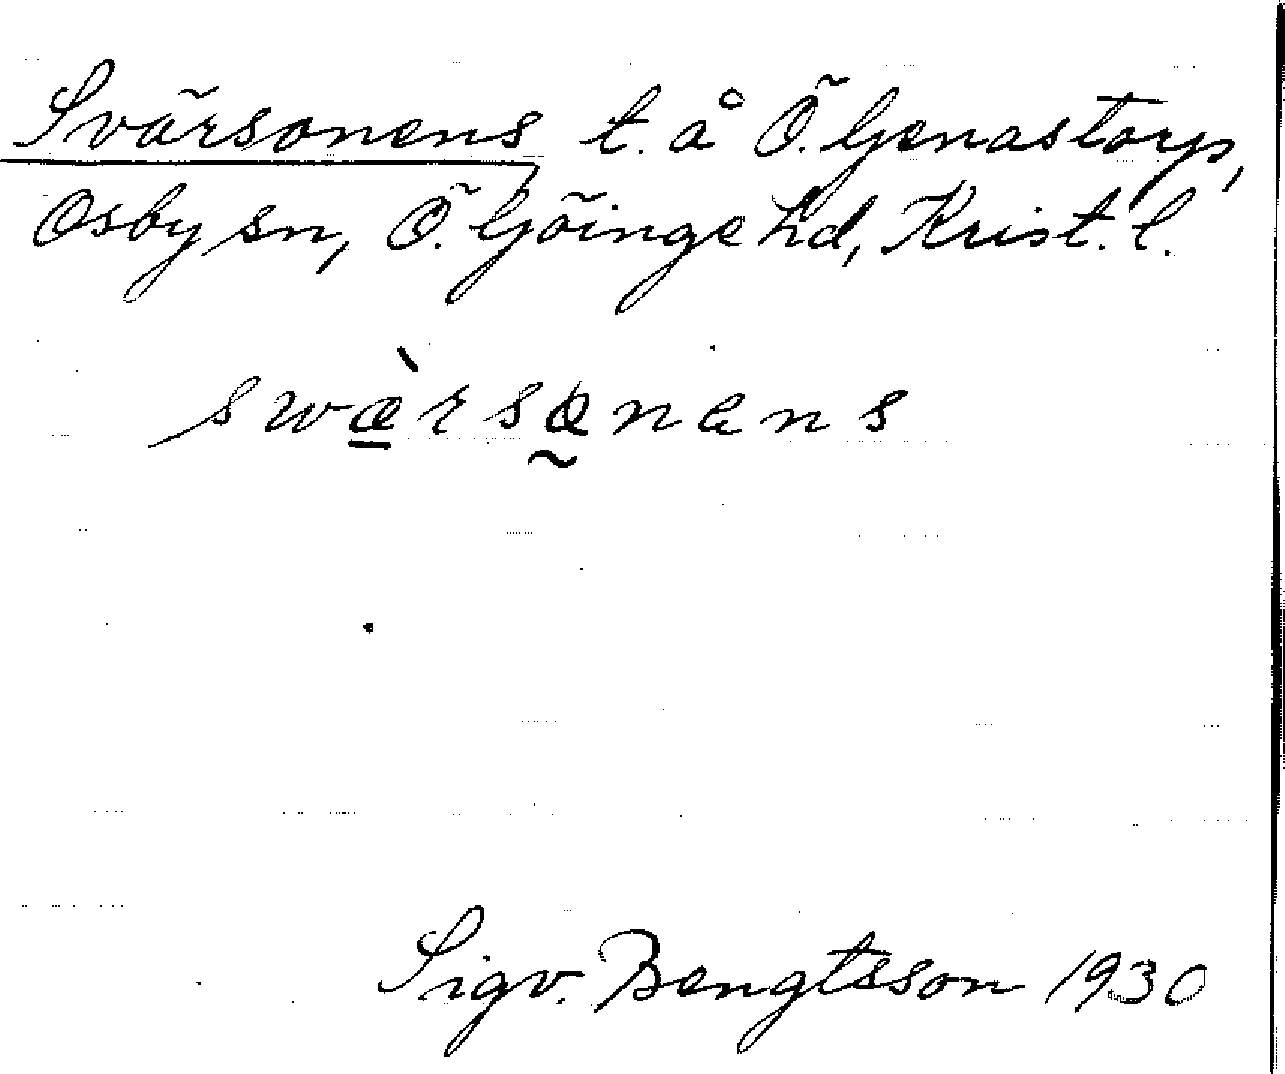 Svärsonens t. å Ö. Genastorp,
Osby sn, Ö. Göinge hd, Krist. l.
swæ̀rsɷnɷns
Sigv. Bengtsson 1930